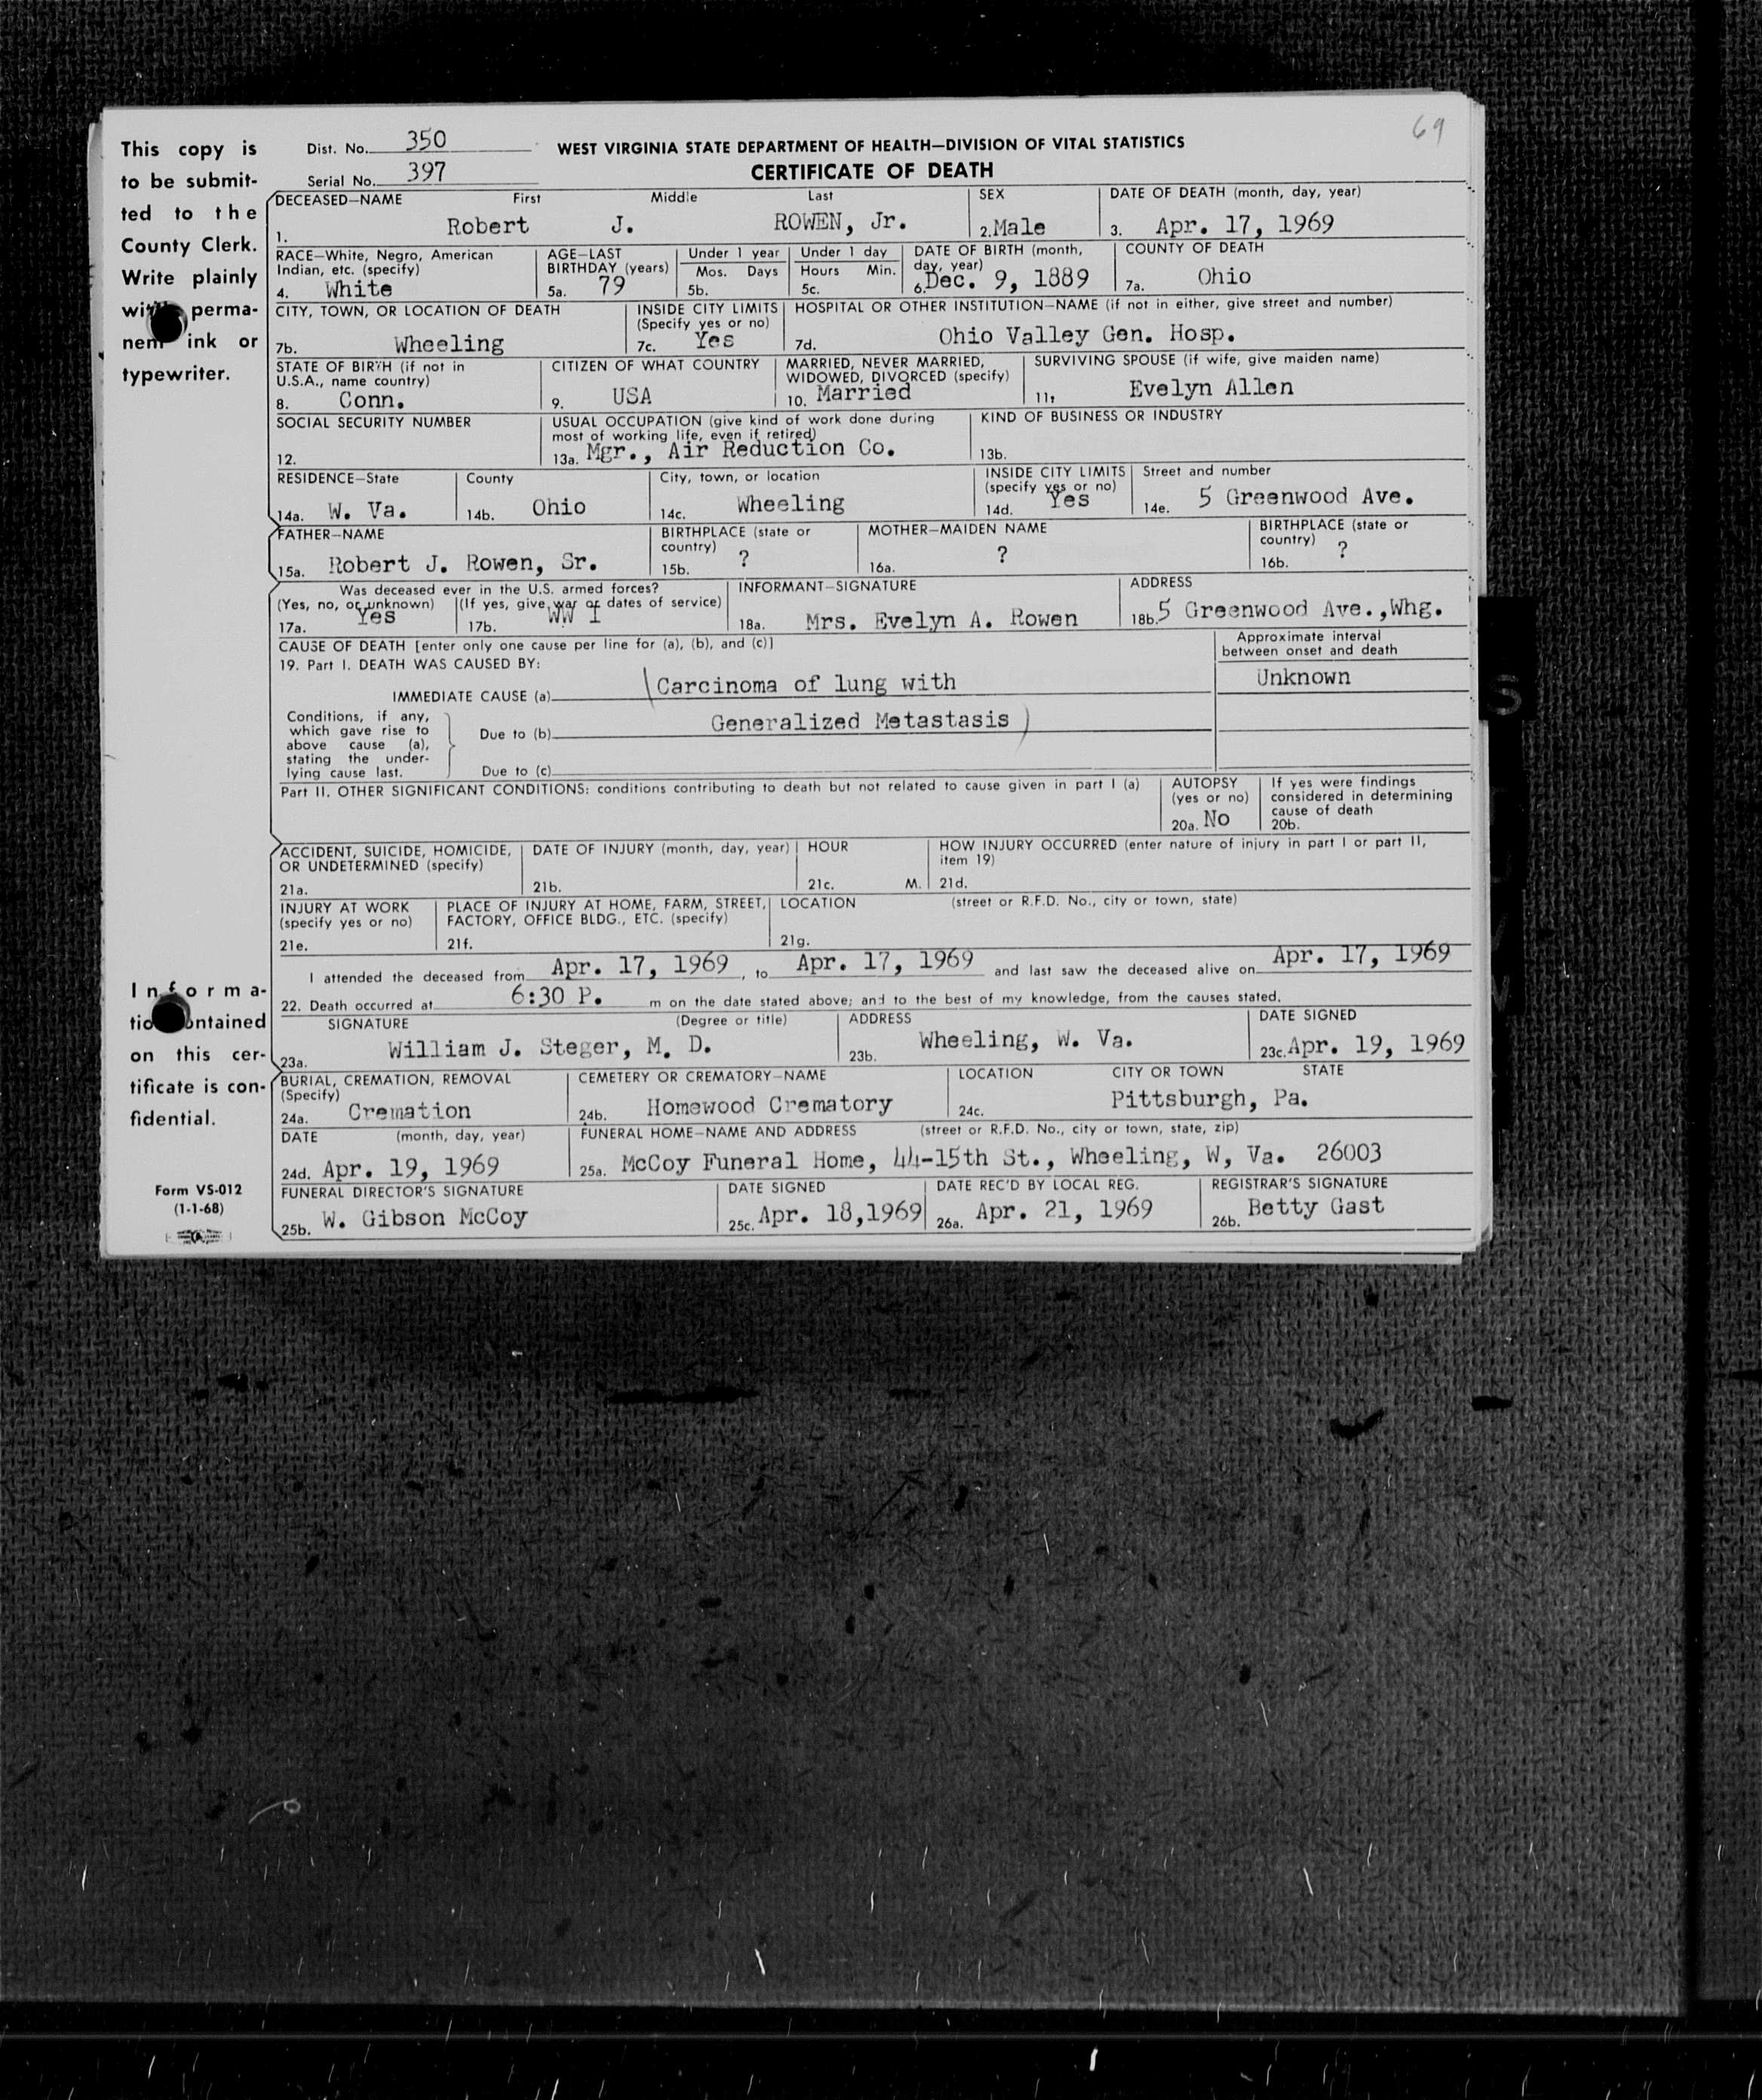 69
This copy is
to be submit-
ted to the
County Clerk.
Write plainly
perma-
ink or
typewriter.
Dist. No. 350
Serial No. 397
WEST VIRGINIA STATE DEPARTMENT OF HEALTH—DIVISION OF VITAL STATISTICS
CERTIFICATE OF DEATH
DECEASED—NAME First Middle Last SEX DATE OF DEATH (month, day, year)
1. Robert J. ROWEN, Jr. 2. Male 3. Apr. 17, 1969
RACE—White, Negro, American Indian, etc. (specify)
4. White
AGE—LAST BIRTHDAY (years)
5a. 79
Under 1 year
Mos. Days
5b.
Under 1 day
Hours Min.
5c.
DATE OF BIRTH (month, day, year)
6. Dec. 9, 1889
COUNTY OF DEATH
7a. Ohio
CITY, TOWN, OR LOCATION OF DEATH
7b. Wheeling
INSIDE CITY LIMITS
(Specify yes or no)
7c. Yes
HOSPITAL OR OTHER INSTITUTION—NAME (if not in either, give street and number)
7d. Ohio Valley Gen. Hosp.
STATE OF BIRTH (if not in U.S.A., name country)
8. Conn.
CITIZEN OF WHAT COUNTRY
9. USA
MARRIED, NEVER MARRIED, WIDOWED, DIVORCED (specify)
10. Married
SURVIVING SPOUSE (if wife, give maiden name)
11. Evelyn Allen
SOCIAL SECURITY NUMBER
12.
USUAL OCCUPATION (give kind of work done during most of working life, even if retired)
13a. Mgr., Air Reduction Co.
KIND OF BUSINESS OR INDUSTRY
13b.
RESIDENCE—State
14a. W. Va.
County
14b. Ohio
City, town, or location
14c. Wheeling
INSIDE CITY LIMITS
(specify yes or no)
14d. Yes
Street and number
14e. 5 Greenwood Ave.
FATHER—NAME
15a. Robert J. Rowen, Sr.
BIRTHPLACE (state or country)
15b. ?
MOTHER—MAIDEN NAME
16a. ?
BIRTHPLACE (state or country)
16b. ?
Was deceased ever in the U.S. armed forces?
(Yes, no, or unknown) (If yes, give war or dates of service)
17a. Yes 17b. WW I
INFORMANT—SIGNATURE
18a. Mrs. Evelyn A. Rowen
ADDRESS
18b. 5 Greenwood Ave.,Whg.
CAUSE OF DEATH [enter only one cause per line for (a), (b), and (c)]
Approximate interval between onset and death
19. Part I. DEATH WAS CAUSED BY:
IMMEDIATE CAUSE (a) (Carcinoma of lung with
Unknown
Conditions, if any, which gave rise to above cause (a), stating the under-lying cause last.
Due to (b) Generalized Metastasis)
Due to (c)
Part II. OTHER SIGNIFICANT CONDITIONS: conditions contributing to death but not related to cause given in part I (a)
AUTOPSY
(yes or no)
20a. No
If yes were findings considered in determining cause of death
20b.
ACCIDENT, SUICIDE, HOMICIDE, OR UNDETERMINED (specify)
21a.
DATE OF INJURY (month, day, year)
21b.
HOUR
21c. M.
HOW INJURY OCCURRED (enter nature of injury in part I or part II, item 19)
21d.
INJURY AT WORK
(specify yes or no)
21e.
PLACE OF INJURY AT HOME, FARM, STREET, FACTORY, OFFICE BLDG., ETC. (specify)
21f.
LOCATION (street or R.F.D. No., city or town, state)
21g.
I attended the deceased from Apr. 17, 1969, to Apr. 17, 1969 and last saw the deceased alive on Apr. 17, 1969
22. Death occurred at 6:30 P. m on the date stated above; and to the best of my knowledge, from the causes stated.
SIGNATURE (Degree or title)
23a. William J. Steger, M. D.
ADDRESS
23b. Wheeling, W. Va.
DATE SIGNED
23c. Apr. 19, 1969
BURIAL, CREMATION, REMOVAL
(Specify)
24a. Cremation
CEMETERY OR CREMATORY—NAME
24b. Homewood Crematory
LOCATION CITY OR TOWN STATE
24c. Pittsburgh, Pa.
DATE (month, day, year)
24d. Apr. 19, 1969
FUNERAL HOME—NAME AND ADDRESS (street or R.F.D. No., city or town, state, zip)
25a. McCoy Funeral Home, 44-15th St., Wheeling, W, Va. 26003
FUNERAL DIRECTOR'S SIGNATURE
25b. W. Gibson McCoy
DATE SIGNED
25c. Apr. 18,1969
DATE REC'D BY LOCAL REG.
26a. Apr. 21, 1969
REGISTRAR'S SIGNATURE
26b. Betty Gast
Informa-
contained
on this cer-
tificate is con-
fidential.
Form VS-012
(1-1-68)
S